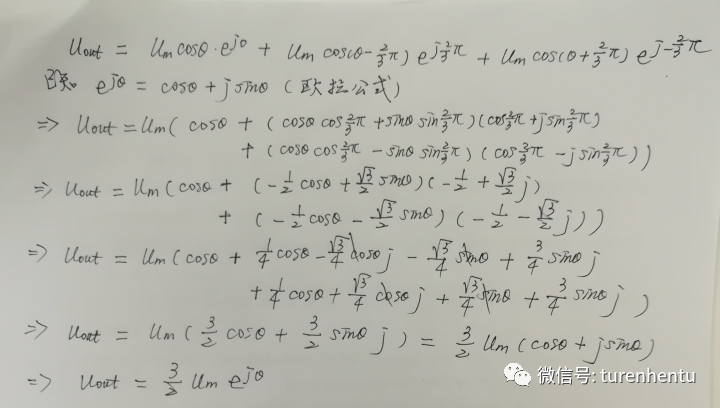 Uout = Um cosθ·e^{j0} + Um cos(θ-2/3π) e^{j2/3π} + Um cos(θ+2/3π) e^{j-2/3π}
已知 e^{jθ} = cosθ + j sinθ (欧拉公式)
=> Uout = Um( cosθ + (cosθ cos2/3π + sinθ sin2/3π)(cos2/3π + j sin2/3π)
+ (cosθ cos2/3π - sinθ sin2/3π) (cos2/3π - j sin2/3π))
=> Uout = Um(cosθ + (-1/2 cosθ + √3/2 sinθ)(-1/2 + √3/2 j)
+ (-1/2 cosθ - √3/2 sinθ) (-1/2 - √3/2 j))
=> Uout = Um(cosθ + 1/4 cosθ - √3/4 cosθ j - √3/4 sinθ + 3/4 sinθ j
+ 1/4 cosθ + √3/4 cosθ j + √3/4 sinθ + 3/4 sinθ j )
=> Uout = Um( 3/2 cosθ + 3/2 sinθ j ) = 3/2 Um (cosθ + j sinθ)
=> Uout = 3/2 Um e^{jθ}
微信号: turenhentu